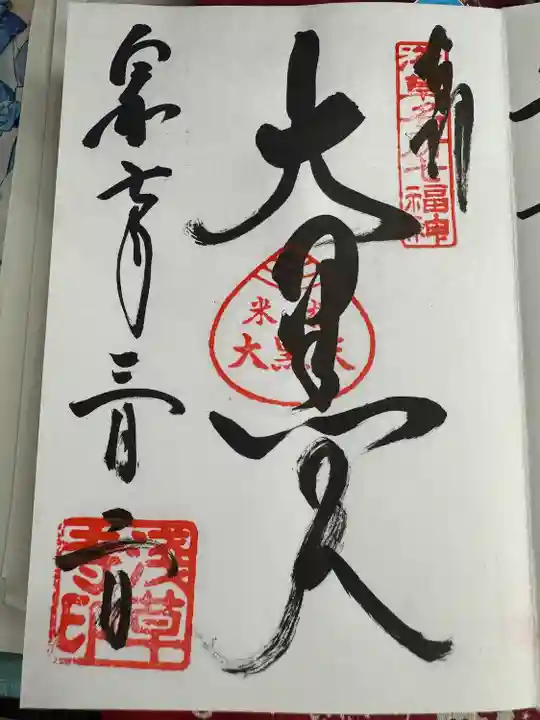 奉拝
浅草名所七福神
大黒天
米びつ
大黒天
令和七年三月二日
浅草寺印